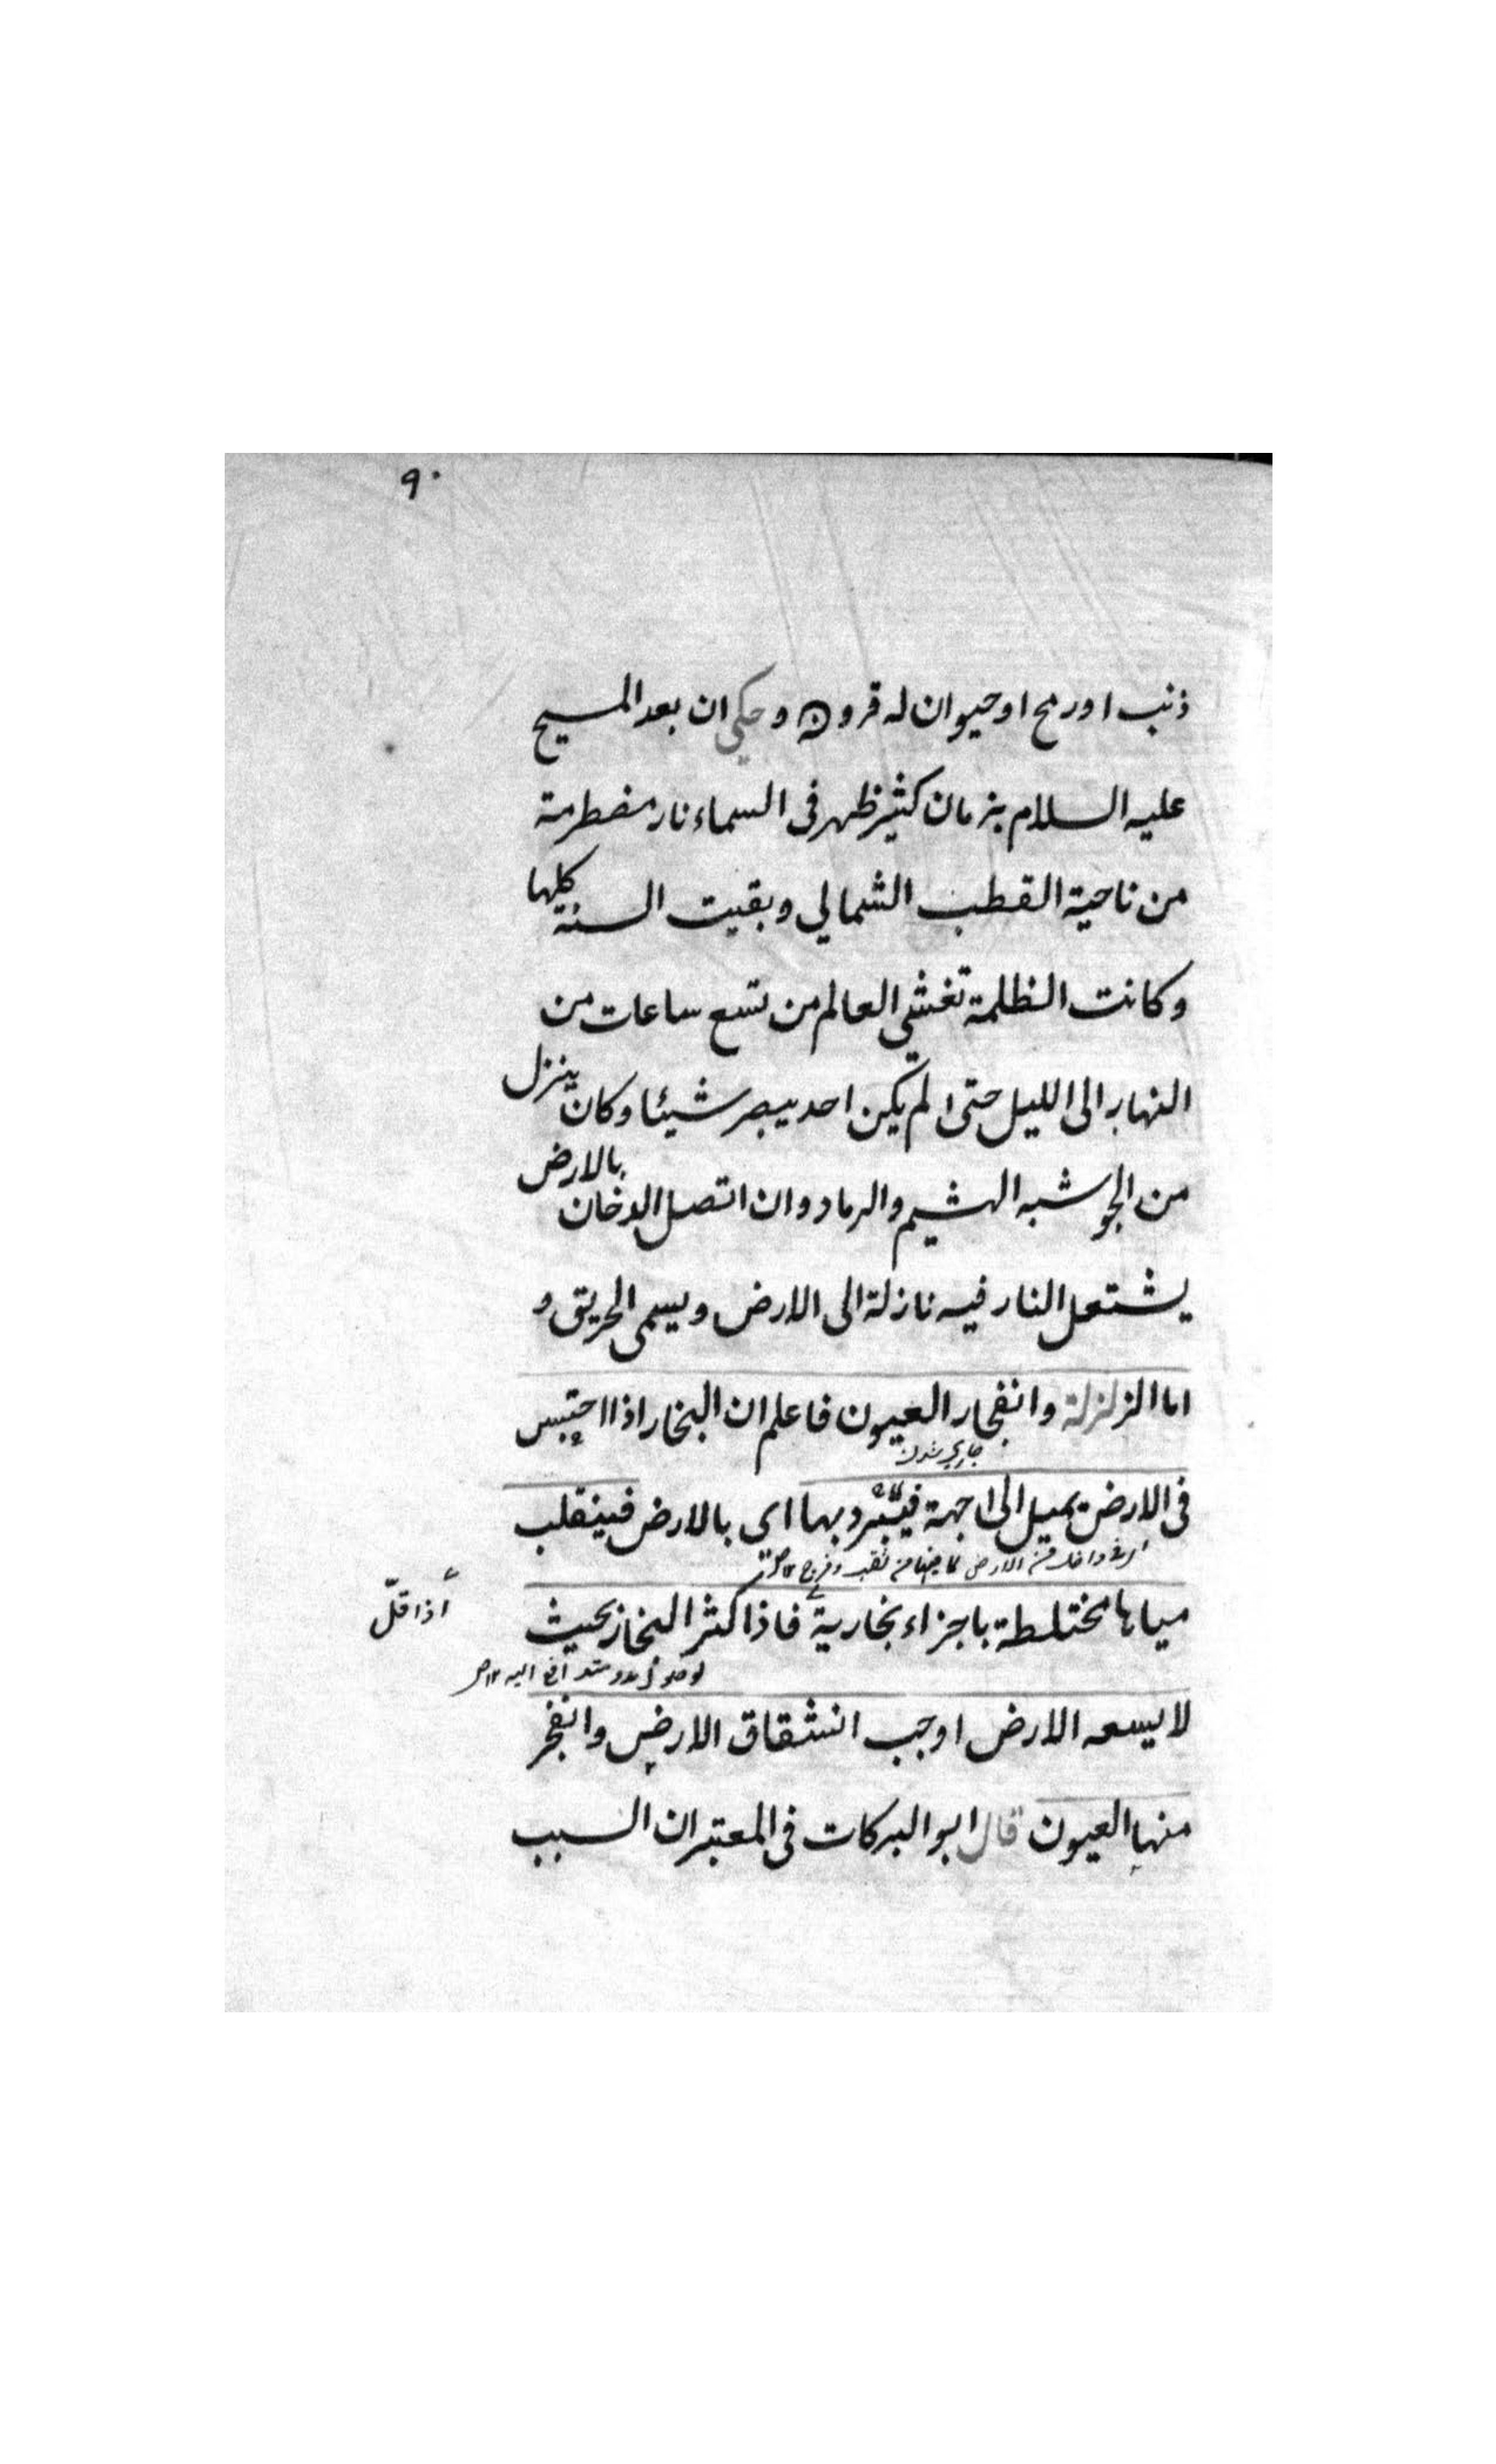 ٩٠
ذنب او رمح او حيوان له قرون وحكي ان بعد المسيح
عليه السلام بزمان كثير ظهر في السماء نار مضطرمة
من ناحية القطب الشمالي وبقيت السنة كلها
وكانت الظلمة تغشي العالم من تسع ساعات من
النهار الى الليل حتى لم يكن احد يبصر شيئا وكان ينزل
من الجو شبه الهشيم والرماد وان اتصل الدخان بالارض
يشتعل النار فيه نازلة الى الارض ويسمى الحريق و
اما الزلزلة وانفجار العيون فاعلم ان البخار اذا احتبس
جاري شدن
في الارض يميل الى جهة فيتبرد بها اي بالارض فينقلب
مياها مختلطة باجزاء بخارية فاذا كثر البخار بحيث
اذا قلّ
لا يسعه الارض اوجب انشقاق الارض وانفجر
منها العيون قال ابو البركات في المعتبر ان السبب